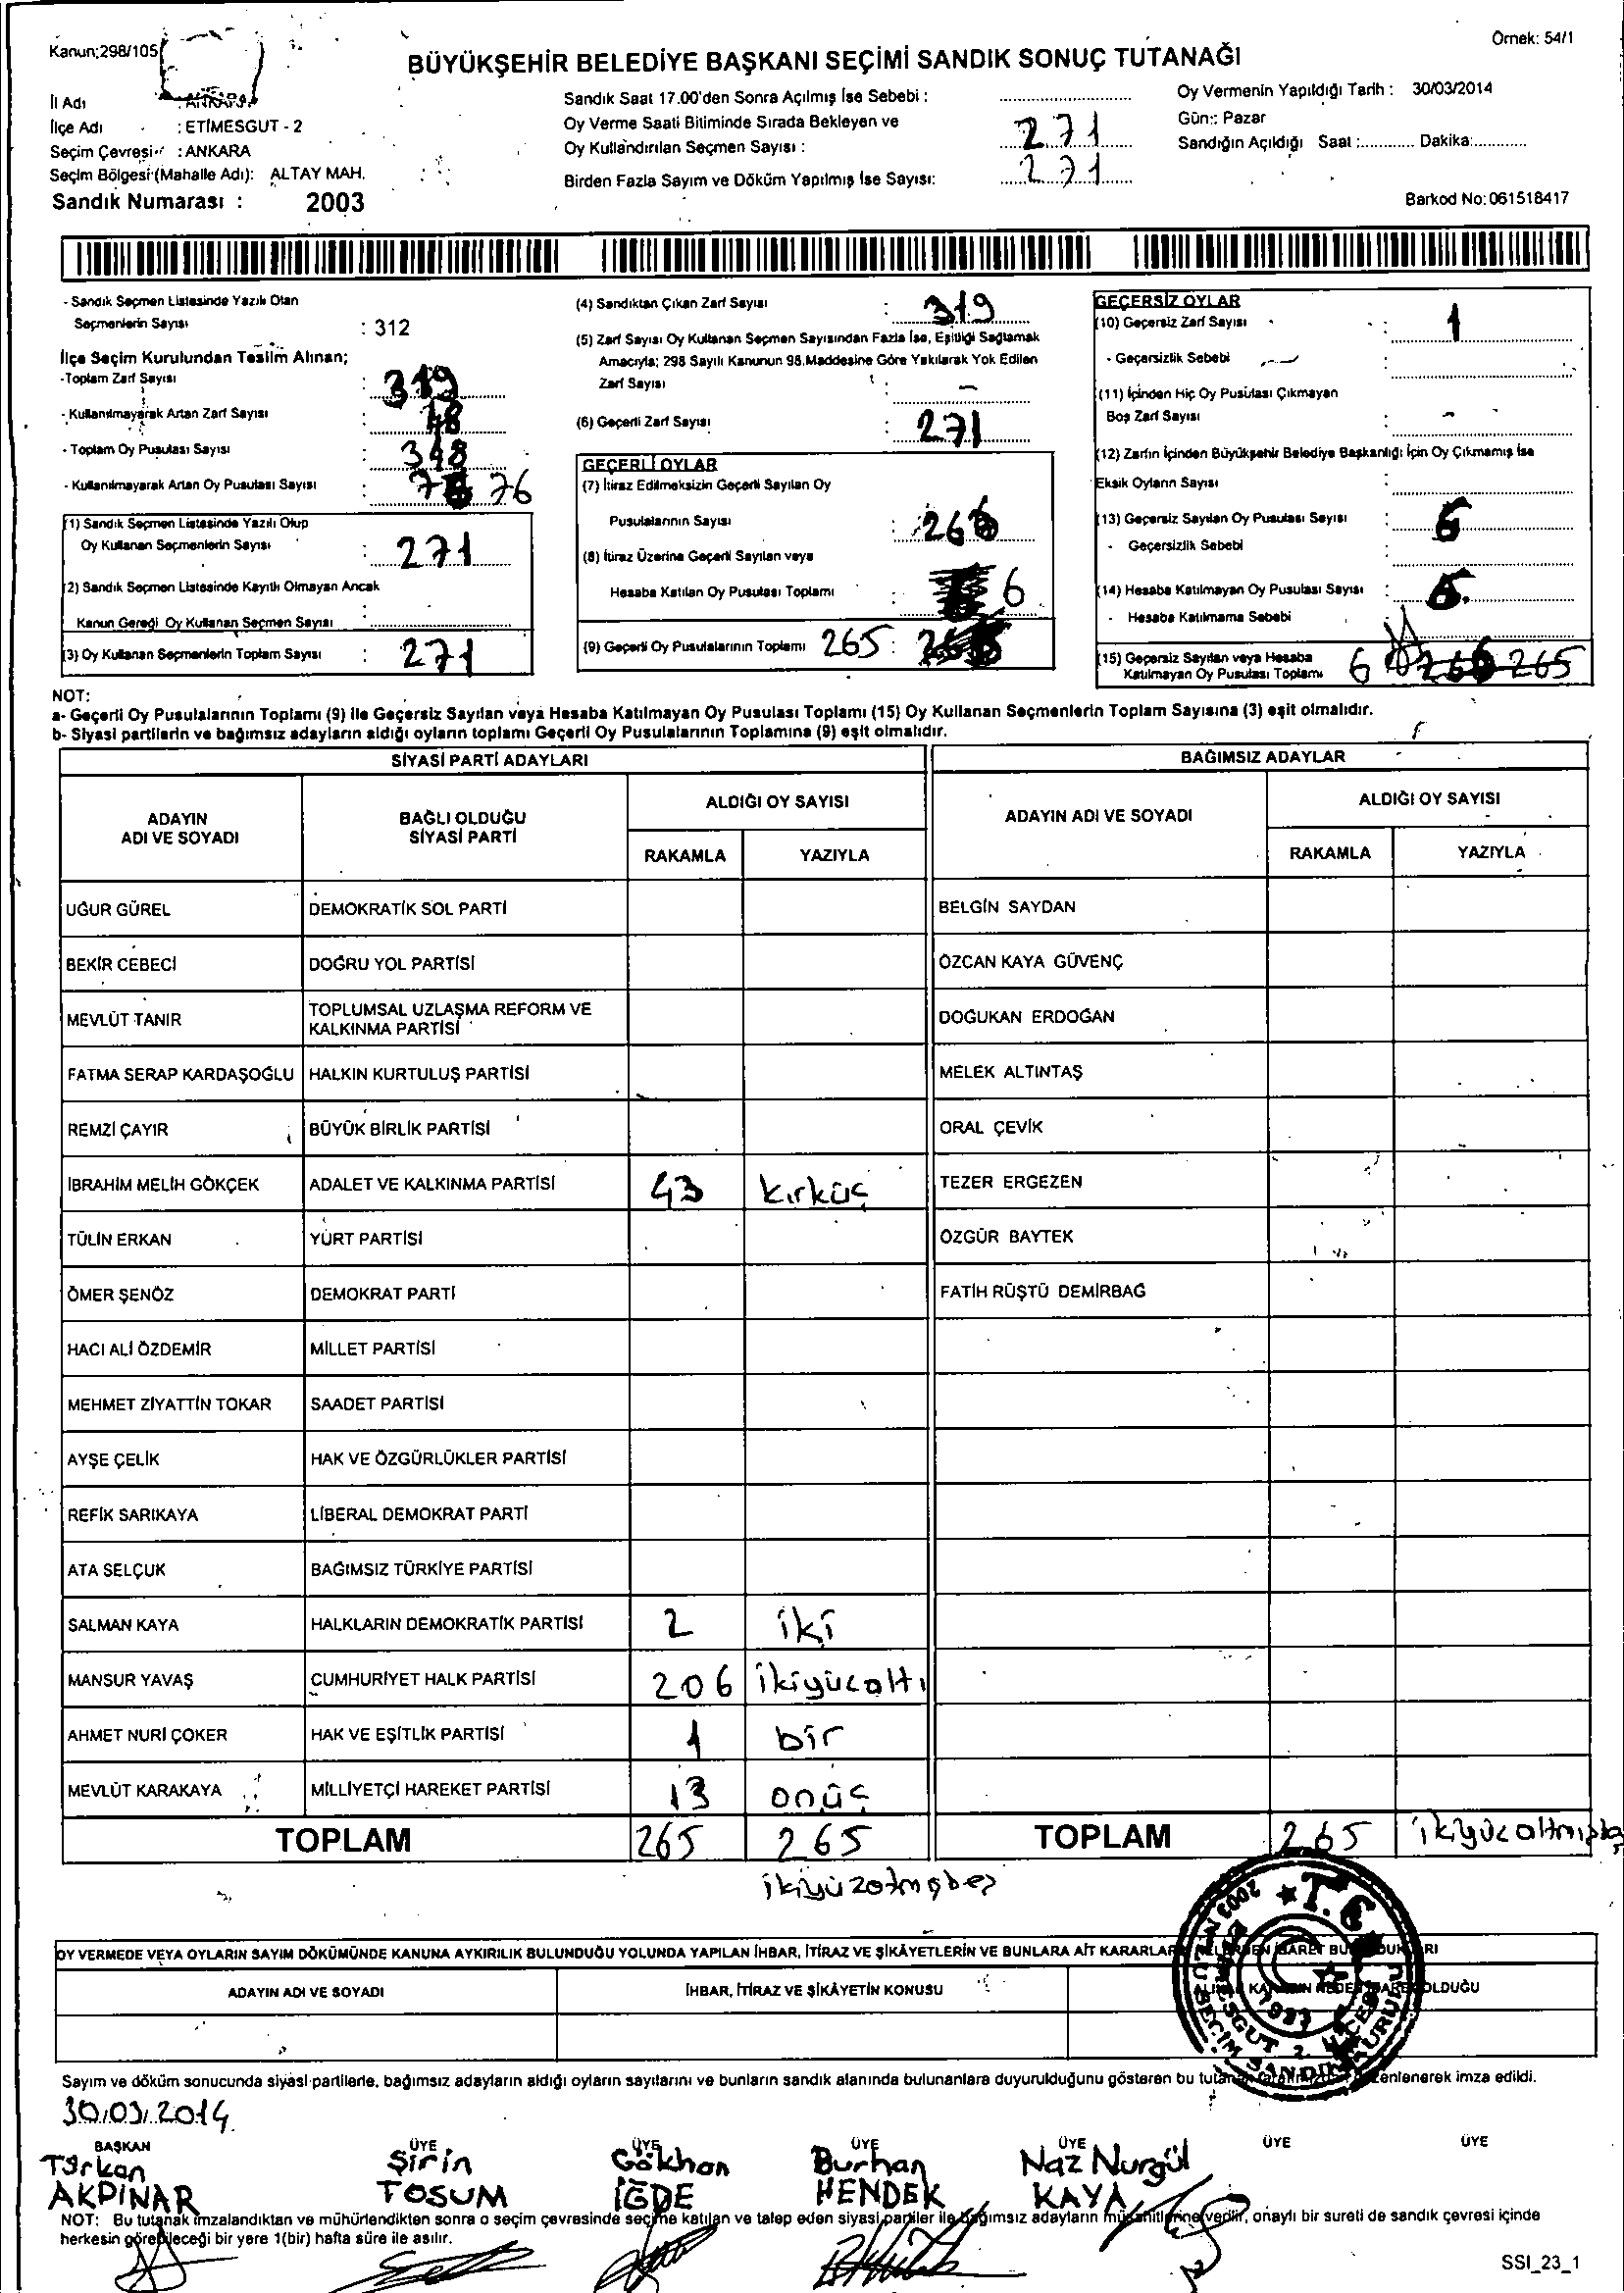 Kanun;298/105
Örnek: 54/1
BÜYÜKŞEHİR BELEDİYE BAŞKANI SEÇİMİ SANDIK SONUÇ TUTANAĞI
İl Adı : ANKARA
İlçe Adı : ETİMESGUT - 2
Seçim Çevresi : ANKARA
Seçim Bölgesi (Mahalle Adı): ALTAY MAH.
Sandık Numarası : 2003
Sandık Saat 17.00'den Sonra Açılmış İse Sebebi :
Oy Verme Saati Bitiminde Sırada Bekleyen ve
Oy Kullandırılan Seçmen Sayısı : 271
Birden Fazla Sayım ve Döküm Yapılmış İse Sayısı: 271
Oy Vermenin Yapıldığı Tarih : 30/03/2014
Gün:: Pazar
Sandığın Açıldığı Saat :............ Dakika:............
Barkod No: 061518417
- Sandık Seçmen Listesinde Yazılı Olan
Seçmenlerin Sayısı : 312
İlçe Seçim Kurulundan Teslim Alınan;
-Toplam Zarf Sayısı : 319
- Kullanılmayarak Artan Zarf Sayısı 48
- Toplam Oy Pusulası Sayısı : 348
- Kullanılmayarak Artan Oy Pusulası Sayısı : 76
(1) Sandık Seçmen Listesinde Yazılı Olup
Oy Kullanan Seçmenlerin Sayısı : 271
(2) Sandık Seçmen Listesinde Kayıtlı Olmayan Ancak
Kanun Gereği Oy Kullanan Seçmen Sayısı :
(3) Oy Kullanan Seçmenlerin Toplam Sayısı : 271
(4) Sandıktan Çıkan Zarf Sayısı : 319
(5) Zarf Sayısı Oy Kullanan Seçmen Sayısından Fazla İse, Eşitliği Sağlamak
Amacıyla; 298 Sayılı Kanunun 98.Maddesine Göre Yakılarak Yok Edilen
Zarf Sayısı : -
(6) Geçerli Zarf Sayısı : 271
GEÇERLİ OYLAR
(7) İtiraz Edilmeksizin Geçerli Sayılan Oy
Pusulalarının Sayısı :
(8) İtiraz Üzerine Geçerli Sayılan veya
Hesaba Katılan Oy Pusulası Toplamı : 6
(9) Geçerli Oy Pusulalarının Toplamı 265 :
GEÇERSİZ OYLAR
(10) Geçersiz Zarf Sayısı : 1
- Geçersizlik Sebebi :
(11) İçinden Hiç Oy Pusulası Çıkmayan
Boş Zarf Sayısı : -
(12) Zarfın İçinden Büyükşehir Belediye Başkanlığı İçin Oy Çıkmamış İse
Eksik Oyların Sayısı :
(13) Geçersiz Sayılan Oy Pusulası Sayısı : 6
- Geçersizlik Sebebi :
(14) Hesaba Katılmayan Oy Pusulası Sayısı : 6.
- Hesaba Katılmama Sebebi :
(15) Geçersiz Sayılan veya Hesaba
Katılmayan Oy Pusulası Toplamı 6 265
NOT:
a- Geçerli Oy Pusulalarının Toplamı (9) ile Geçersiz Sayılan veya Hesaba Katılmayan Oy Pusulası Toplamı (15) Oy Kullanan Seçmenlerin Toplam Sayısına (3) eşit olmalıdır.
b- Siyasi partilerin ve bağımsız adayların aldığı oyların toplamı Geçerli Oy Pusulalarının Toplamına (9) eşit olmalıdır.
SİYASİ PARTİ ADAYLARI
BAĞIMSIZ ADAYLAR
ADAYIN
ADI VE SOYADI
BAĞLI OLDUĞU
SİYASİ PARTİ
ALDIĞI OY SAYISI
RAKAMLA YAZIYLA
ADAYIN ADI VE SOYADI
ALDIĞI OY SAYISI
RAKAMLA YAZIYLA
UĞUR GÜREL DEMOKRATİK SOL PARTİ BELGİN SAYDAN
BEKİR CEBECİ DOĞRU YOL PARTİSİ ÖZCAN KAYA GÜVENÇ
MEVLÜT TANIR TOPLUMSAL UZLAŞMA REFORM VE
KALKINMA PARTİSİ DOĞUKAN ERDOĞAN
FATMA SERAP KARDAŞOĞLU HALKIN KURTULUŞ PARTİSİ MELEK ALTINTAŞ
REMZİ ÇAYIR BÜYÜK BİRLİK PARTİSİ ORAL ÇEVİK
İBRAHİM MELİH GÖKÇEK ADALET VE KALKINMA PARTİSİ 43 kırküç TEZER ERGEZEN
TÜLİN ERKAN YURT PARTİSİ ÖZGÜR BAYTEK
ÖMER ŞENÖZ DEMOKRAT PARTİ FATİH RÜŞTÜ DEMİRBAĞ
HACI ALİ ÖZDEMİR MİLLET PARTİSİ
MEHMET ZİYATTİN TOKAR SAADET PARTİSİ
AYŞE ÇELİK HAK VE ÖZGÜRLÜKLER PARTİSİ
REFİK SARIKAYA LİBERAL DEMOKRAT PARTİ
ATA SELÇUK BAĞIMSIZ TÜRKİYE PARTİSİ
SALMAN KAYA HALKLARIN DEMOKRATİK PARTİSİ 2 iki
MANSUR YAVAŞ CUMHURİYET HALK PARTİSİ 206 ikiyüzaltı
AHMET NURİ ÇOKER HAK VE EŞİTLİK PARTİSİ 1 bir
MEVLÜT KARAKAYA MİLLİYETÇİ HAREKET PARTİSİ 13 onüç
TOPLAM 265 265 TOPLAM 265
ikiyüzatmışbeş
OY VERMEDE VEYA OYLARIN SAYIM DÖKÜMÜNDE KANUNA AYKIRILIK BULUNDUĞU YOLUNDA YAPILAN İHBAR, İTİRAZ VE ŞİKÂYETLERİN VE BUNLARA AİT
ADAYIN ADI VE SOYADI İHBAR, İTİRAZ VE ŞİKÂYETİN KONUSU OLDUĞU
Sayım ve döküm sonucunda siyasi partilerle, bağımsız adayların aldığı oyların sayılarını ve bunların sandık alanında bulunanlara duyurulduğunu gösteren bu imza edildi.
30.03.2014
BAŞKAN ÜYE ÜYE ÜYE ÜYE ÜYE ÜYE
Türkan Şirin Gökhan Burhan Naz Nurgül
AKPINAR TOSUM İĞDE HENDEK KAYA
NOT: Bu tutanak imzalandıktan ve mühürlendikten sonra o seçim çevresinde seçime katılan ve talep eden siyasi partiler ile bağımsız adayların müşahitlerine verilir, onaylı bir sureti de sandık çevresi içinde
herkesin görebileceği bir yere 1(bir) hafta süre ile asılır.
SSI_23_1